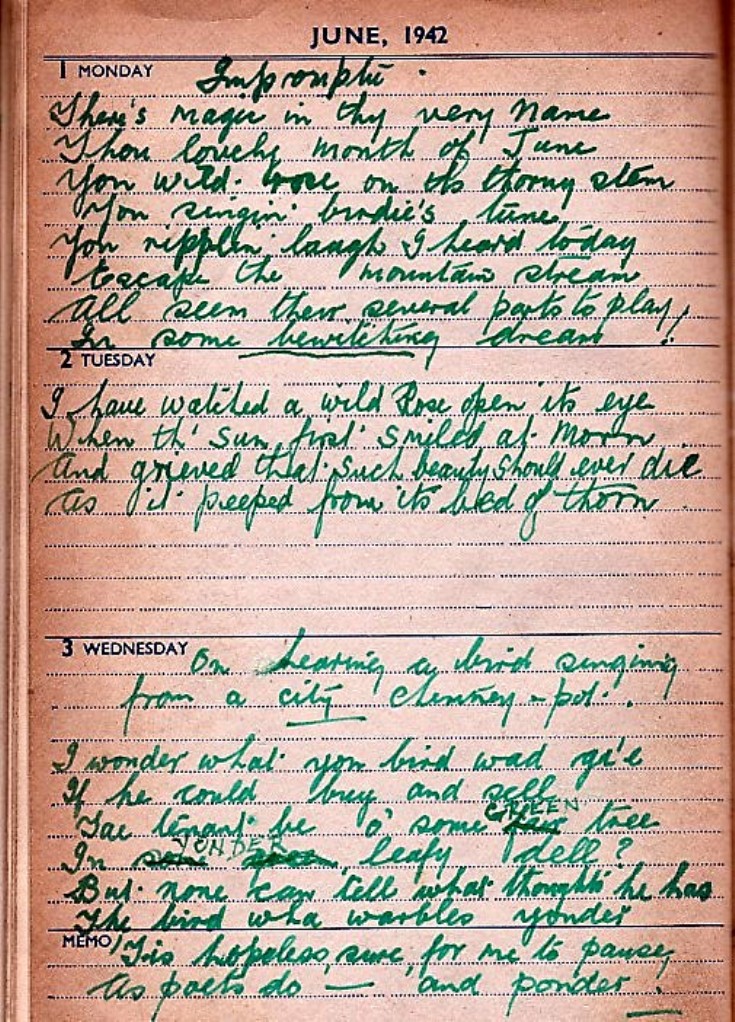 JUNE, 1942
1 MONDAY Impromptu.
There's magic in thy very Name
Thou lovely month of June
Yon wild rose on its thorny stem
Yon singin' birdie's tune
Yon ripplin' laugh I heard today
Escape the mountain stream
All seem their several parts to play,
In some bewitching dream!
2 TUESDAY
I have watched a wild Rose open its eye
When th' sun first smiled at Morn
And grieved that such beauty should ever die
As it peeped from its bed of thorn.
3 WEDNESDAY
On hearing a bird singing
from a city chimney-pot.
I wonder what yon bird wad gi'e
If he could buy and sell
Tae tenant be o' some GREEN tree
In YONDER leafy dell?
But none can tell what thoughts he has
The bird wha warbles yonder
MEMO 'Tis hopeless, sure, for me to pause,
As poets do — and ponder.